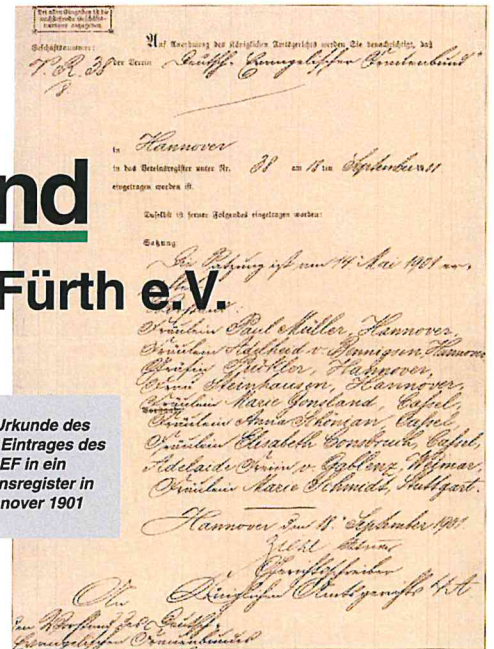 Bei allen Eingaben ist die
nachstehende Geschäfts-
nummer anzugeben.
Geschäftsnummer:
V. R. 38
8.
Auf Anordnung des Königlichen Amtsgerichts werden Sie benachrichtigt, daß
der Verein „Deutsch-Evangelischer Frauenbund"
in Hannover
in das Vereinsregister unter Nr. 38 am 18 ten September
eingetragen worden ist.
Daselbst ist ferner Folgendes eingetragen worden:
Satzung:
Die Satzung ist am 14. Mai 1901 er-
Vorstand:
Fräulein Paula Müller, Hannover,
Fräulein Adelheid v. Bennigsen, Hannover
Gräfin Hannover,
Frau Steinhausen, Hannover,
Fräulein Marie Cassel,
Fräulein Anna Cassel,
Fräulein Elisabeth Consbruch, Cassel,
Adelaide v. Gablenz, Weimar,
Fräulein Marie Schmidt, Stuttgart.
Hannover den 18. September 1901
Gerichtsschreiber
Königlichen Amtsgerichts 4A
An
den Vorstand des Deutsch-
Evangelischen Frauenbundes
nd
Fürth e.V.
Urkunde des
Eintrages des
EF in ein
nsregister in
nover 1901